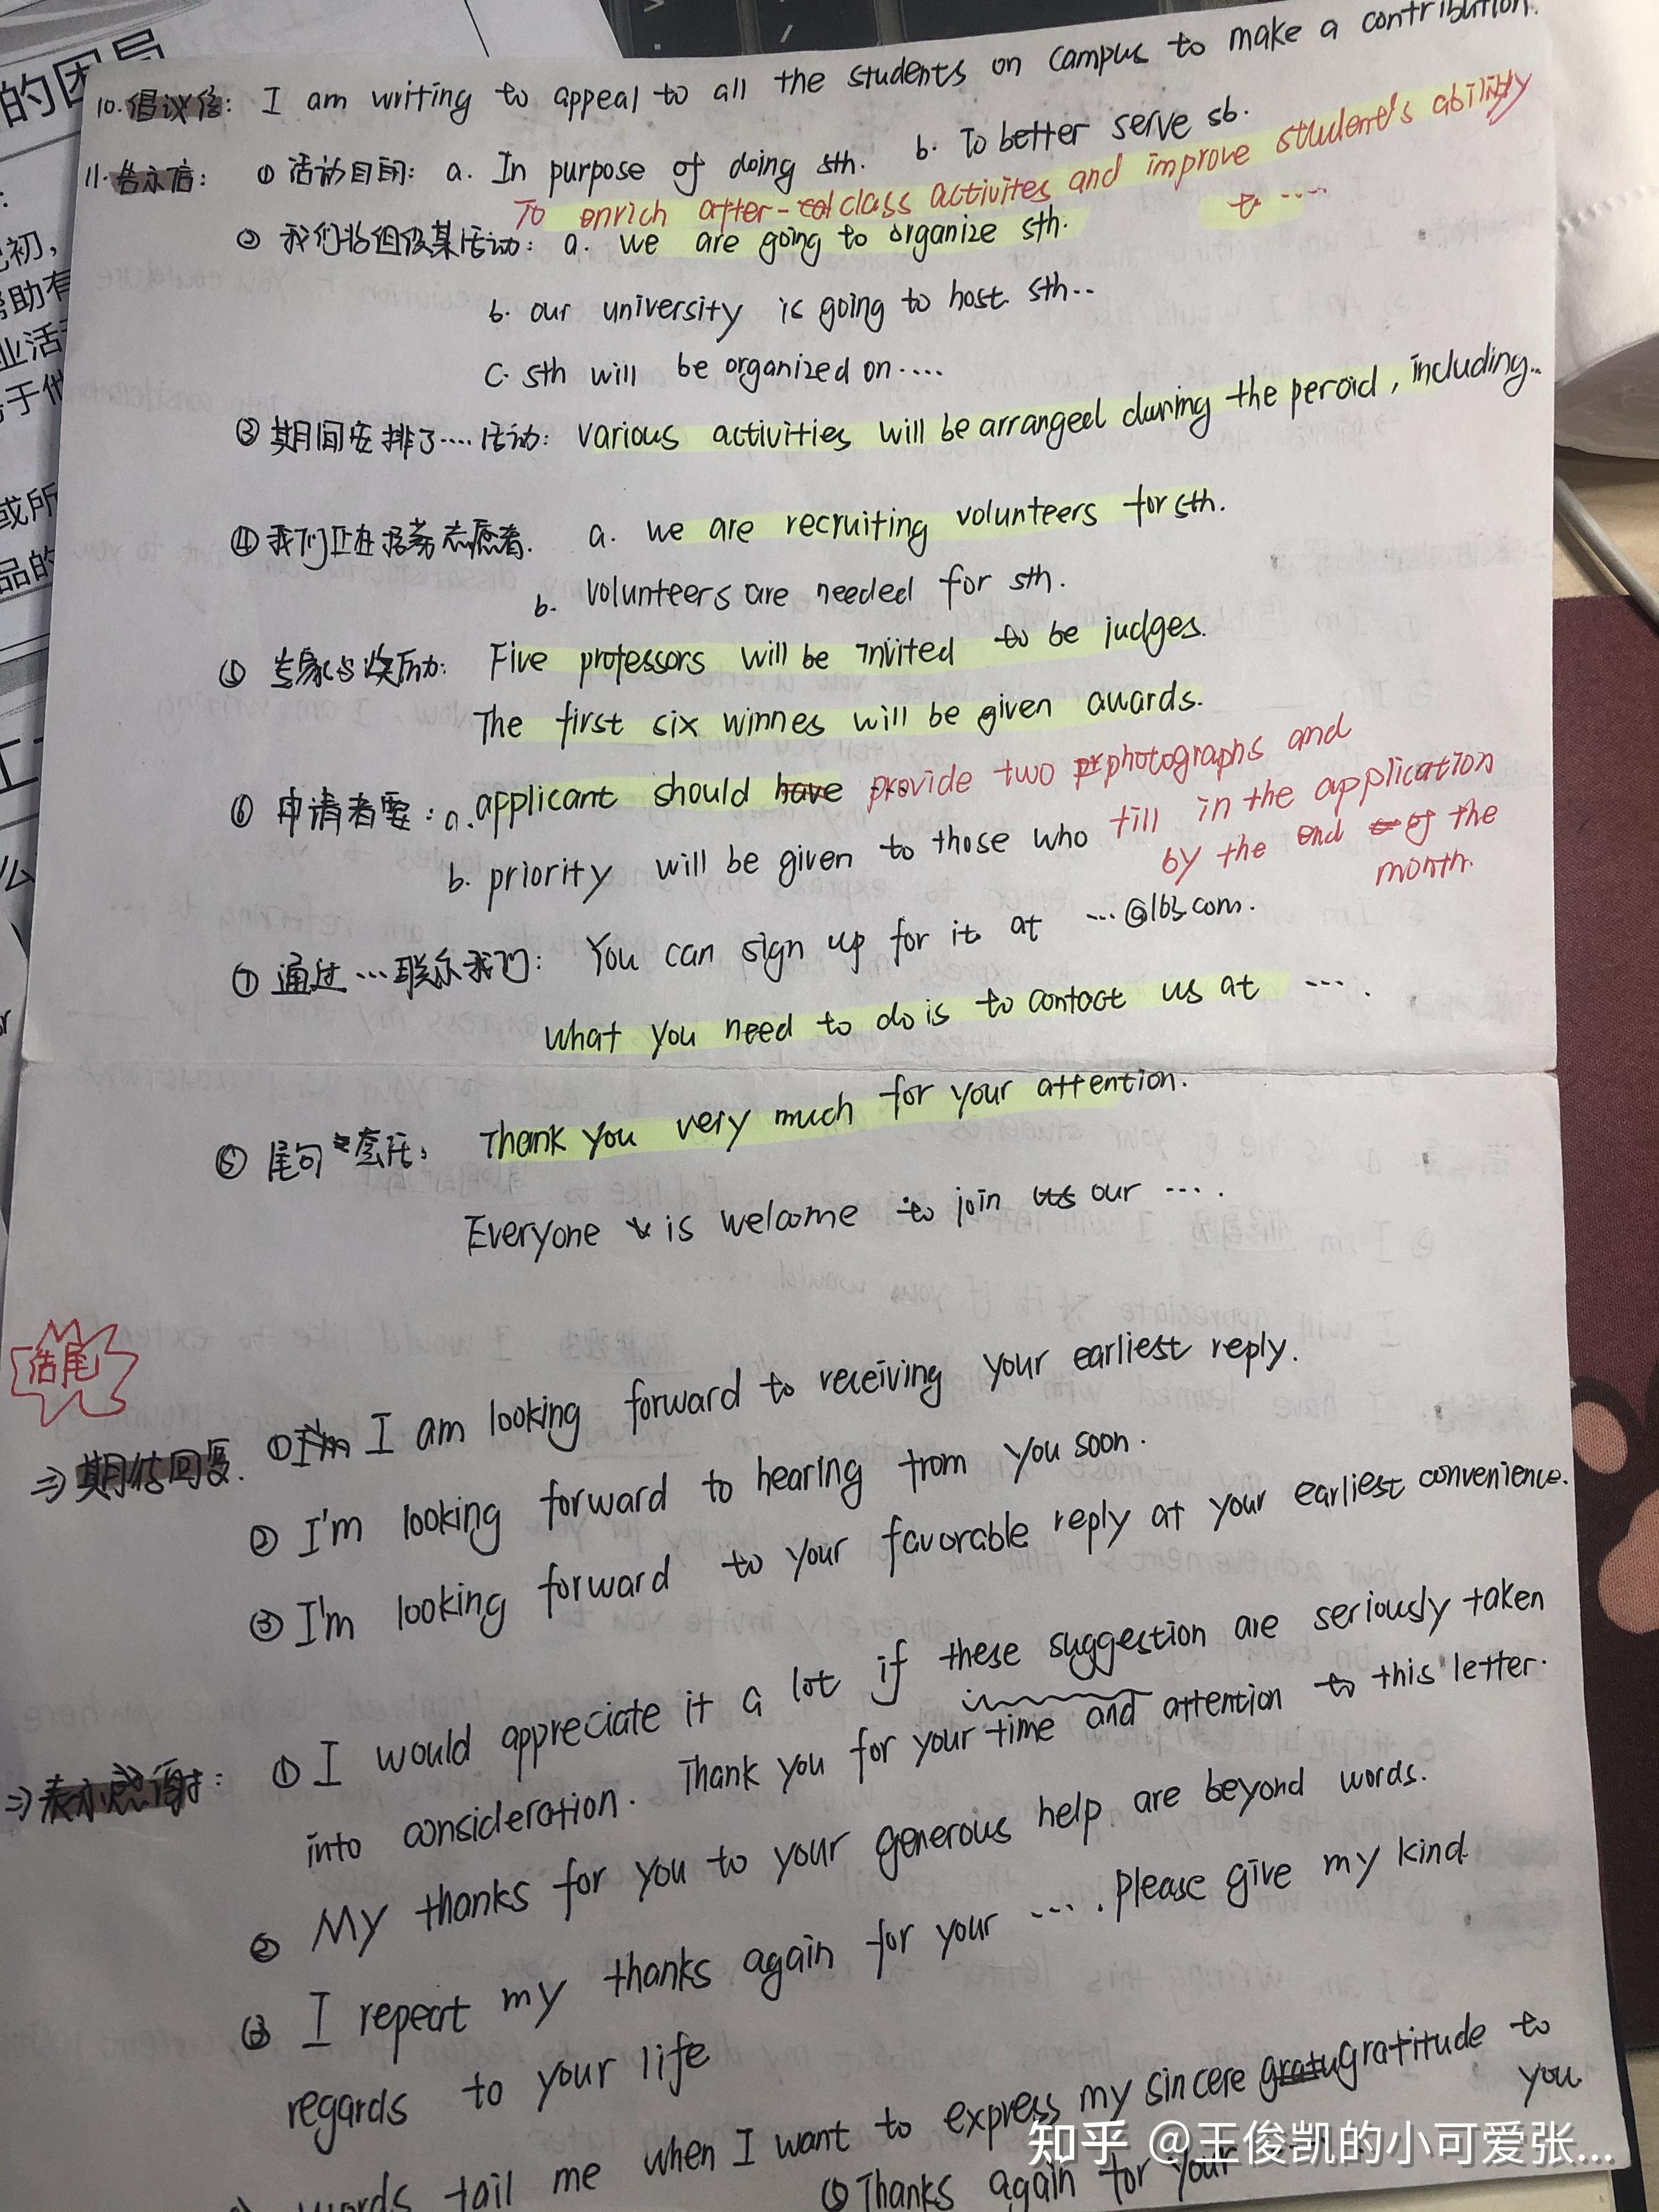 的困局
10.倡议信: I am writing to appeal to all the students on campus to make a contribution.
11.告示信: ① 活动目的: a. In purpose of doing sth. b. To better serve sb.
To enrich after-class activites and improve student's ability
to ....
② 我们将组织某活动: a. we are going to organize sth.
b. our university is going to host sth..
C. sth will be organized on....
③ 期间安排了....活动: various activities will be arranged during the peroid, including...
④ 我们正在招募志愿者. a. we are recruiting volunteers for sth.
b. volunteers are needed for sth.
⑤ 专家与奖励: Five professors will be invited to be judges.
The first six winnes will be given awards.
⑥ 申请者要: a. applicant should have .... provide two photographs and
b. priority will be given to those who fill in the application
by the end of the
month.
⑦ 通过...联系我们: You can sign up for it at ...@163.com.
What you need to do is to contact us at ....
⑧ 尾句套话: Thank you very much for your attention.
Everyone is welcome to join us our ....
结尾
⇒ 期待回复. ① I'm I am looking forward to receiving your earliest reply.
② I'm looking forward to hearing from you soon.
③ I'm looking forward to your favorable reply at your earliest convenience.
⇒ 表示感谢: ① I would appreciate it a lot if these suggestion are seriously taken
into consideration. Thank you for your time and attention to this letter.
② My thanks for you to your generous help are beyond words.
③ I repeat my thanks again for your .... please give my kind
regards to your life
words fail me when I want to express my sincere gratu gratitude to
you.
⑤ Thanks again for your
知乎 @王俊凯的小可爱张...